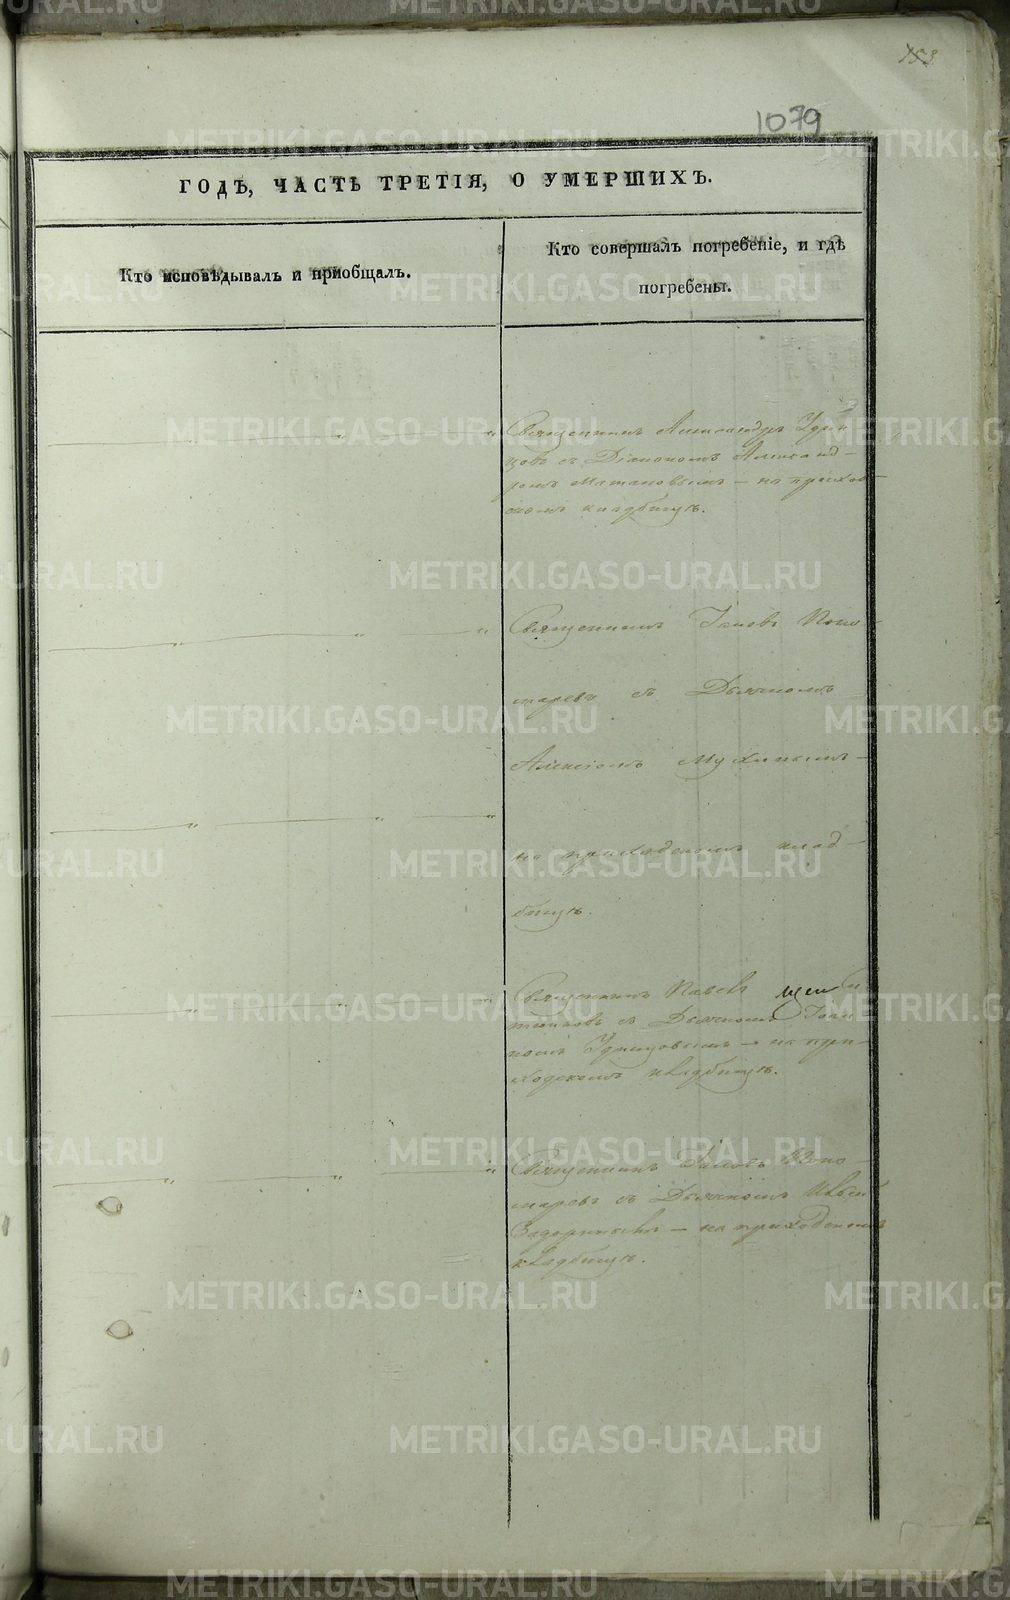 153
1079
ГОДЪ, ЧАСТЬ ТРЕТІЯ, О УМЕРШИХЪ.
Кто исповѣдывалъ и пріобщалъ.
Кто совершалъ погребеніе, и гдѣ
погребены.
Священникъ Александръ Удин
цовъ съ Діакономъ Алексан
ромъ — на приход
скомъ кладбищѣ.
Священникъ Іаковъ Поно
маревъ съ Дьячкомъ
Алексіемъ Мухинымъ —
на приходскомъ клад
бищѣ.
Священникъ Павелъ
съ Дьячкомъ Іоан
номъ Удинцовымъ — на при
ходскомъ кладбищѣ.
Священникъ Іаковъ Поно
маревъ съ Дьячкомъ
— на приходскомъ
кладбищѣ.
METRIKI.GASO-URAL.RU